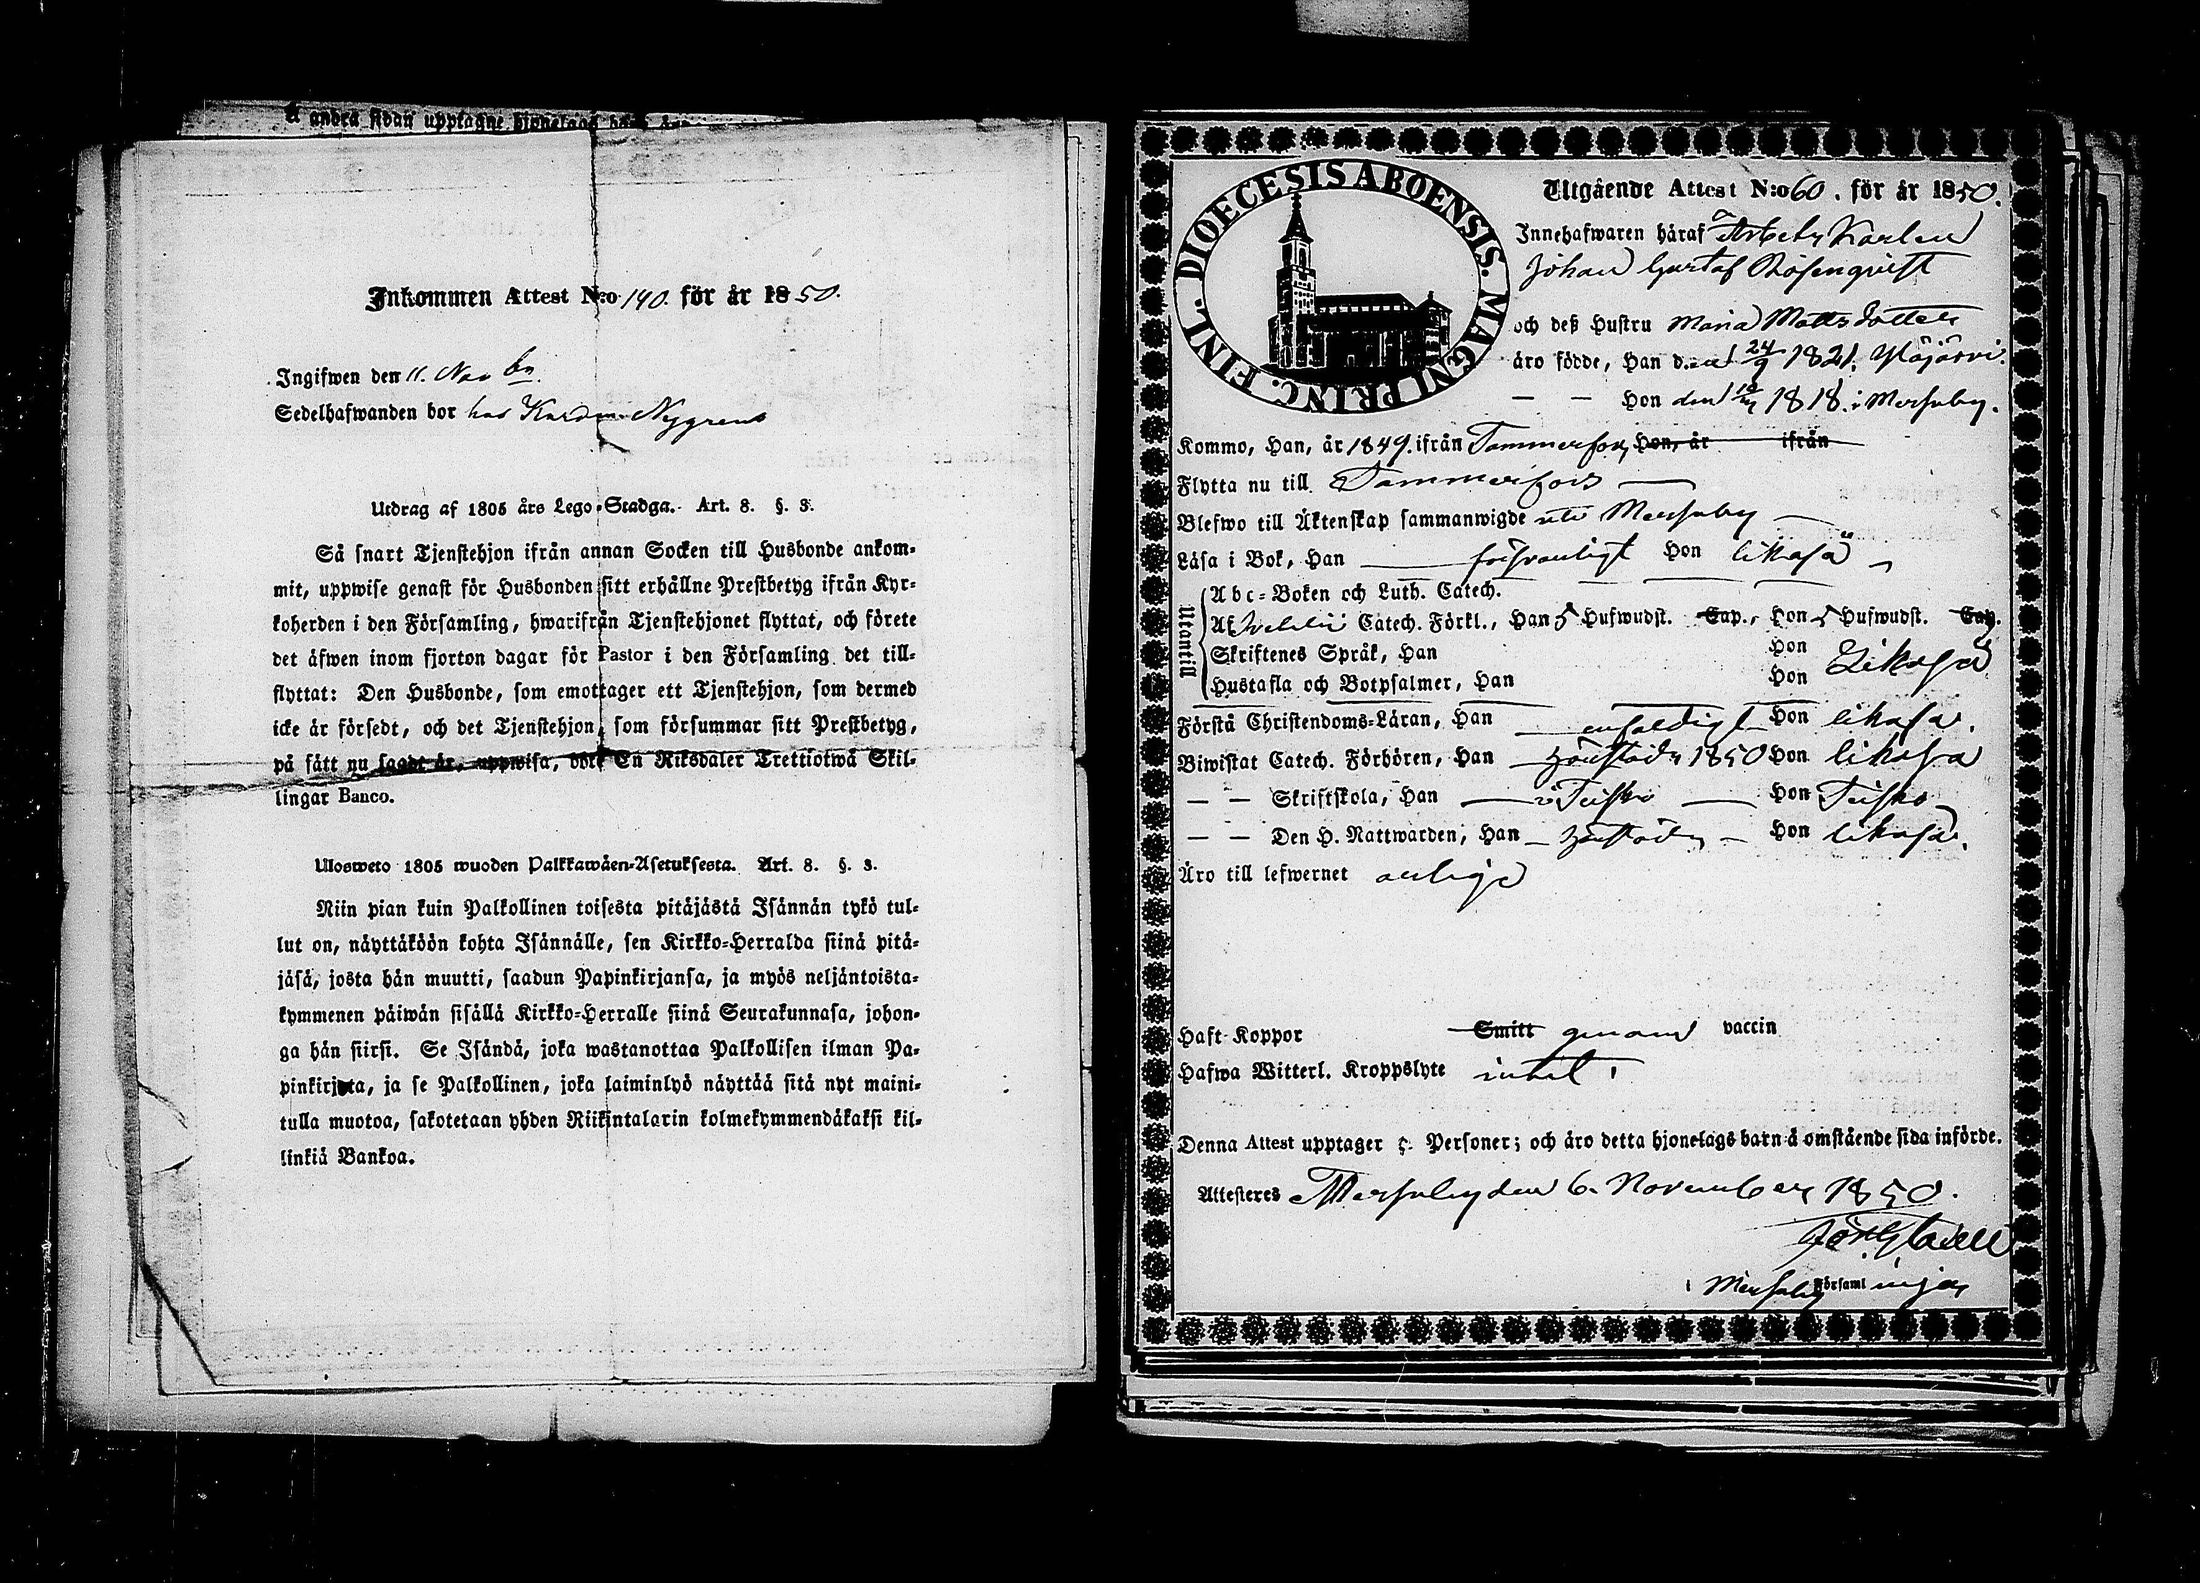 å andra sidan upptagne hjonelags
Inkommen Attest N:o 140. för år 1850.
Ingifwen den 11. Nov br.
Sedelhafwanden bor hos Nygrens
Utdrag af 1805 års Lego-Stadga. Art. 8. §. 3.
Så snart Tjenstehjon ifrån annan Socken till Husbonde ankom-
mit, uppwise genast för Husbonden sitt erhållne Prestbetyg ifrån Kyr-
koherden i den Församling, hwarifrån Tjenstehjonet flyttat, och förete
det äfwen inom fjorton dagar för Pastor i den Församling det till-
flyttat: Den Husbonde, som emottager ett Tjenstehjon, som dermed
icke är försedt, och det Tjenstehjon, som försummar sitt Prestbetyg,
på sätt nu sagdt är, uppwisa, böte En Riksdaler Trettiotwå Skil-
lingar Banco.
Ulosweto 1805 wuoden Palkkawäen-Asetuksesta. Art. 8. §. 3.
Niin pian kuin Palkollinen toisesta pitäjästä Isännän tykö tul-
lut on, näyttäköön kohta Isännälle, sen Kirkko-Herralda siinä pitä-
jäsä, josta hän muutti, saadun Papinkirjansa, ja myös neljäntoista-
kymmenen päiwän sisällä Kirkko-Herralle siinä Seurakunnasa, johon-
ga hän siirsi. Se Isändä, joka wastanottaa Palkollisen ilman Pa-
pinkirjata, ja se Palkollinen, joka laiminlyö näyttää sitä nyt maini-
tulla muotoa, sakotetaan yhden Riikintalarin kolmekymmendäkaksi kil-
linkiä Bankoa.
DIOECESIS ABOENSIS. MAGNI PRINC. FINL.
Utgående Attest N:o 60. för år 1850.
Innehafwaren häraf Arbets Karlen
Johan Gustaf Rosenqvist
och deß Hustru Maria Mattsdotter
äro födde, Han den 24/9 1821. Ylöjärvi.
— — Hon den 1818. i Messuby.
Kommo, Han, år 1849. ifrån Tammerfors, Hon, år ifrån
Flytta nu till Tammerfors
Blefwo till Äktenskap sammanwigde uti Messuby
Läsa i Bok, Han försvarligt Hon likaså
Utantill
Abc-Boken och Luth. Catech.
Af Svebelii Catech. Förkl., Han 5 Hufwudst. Cap., Hon 5 Hufwudst. Cap.
Skriftenes Språk, Han Hon
Hustafla och Botpsalmer, Han Hon Likaså
Förstå Christendoms-Läran, Han enfaldigt Hon likaså.
Biwistat Catech. Förhören, Han härstädes 1850 Hon likaså
— — Skriftskola, Han i Teisko Hon Teisko
— — Den H. Nattwarden, Han härstädes Hon likaså.
Äro till lefwernet ärlige
Haft Koppor Smitt genom vaccin
Hafwa Witterl. Kroppslyte intet.
Denna Attest upptager Personer; och äro detta hjonelags barn å omstående sida införde.
Attesteres Messuby den 6. November 1850.
i Messuby Församlingen